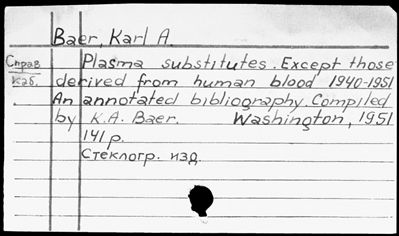 Baer, Karl A.
Справ Plasma substitutes. Except those
каб. derived from human blood 1940-1951
An annotated bibliography. Compiled
by K.A. Baer. Washington, 1951
141 p.
Стеклогр. изд.